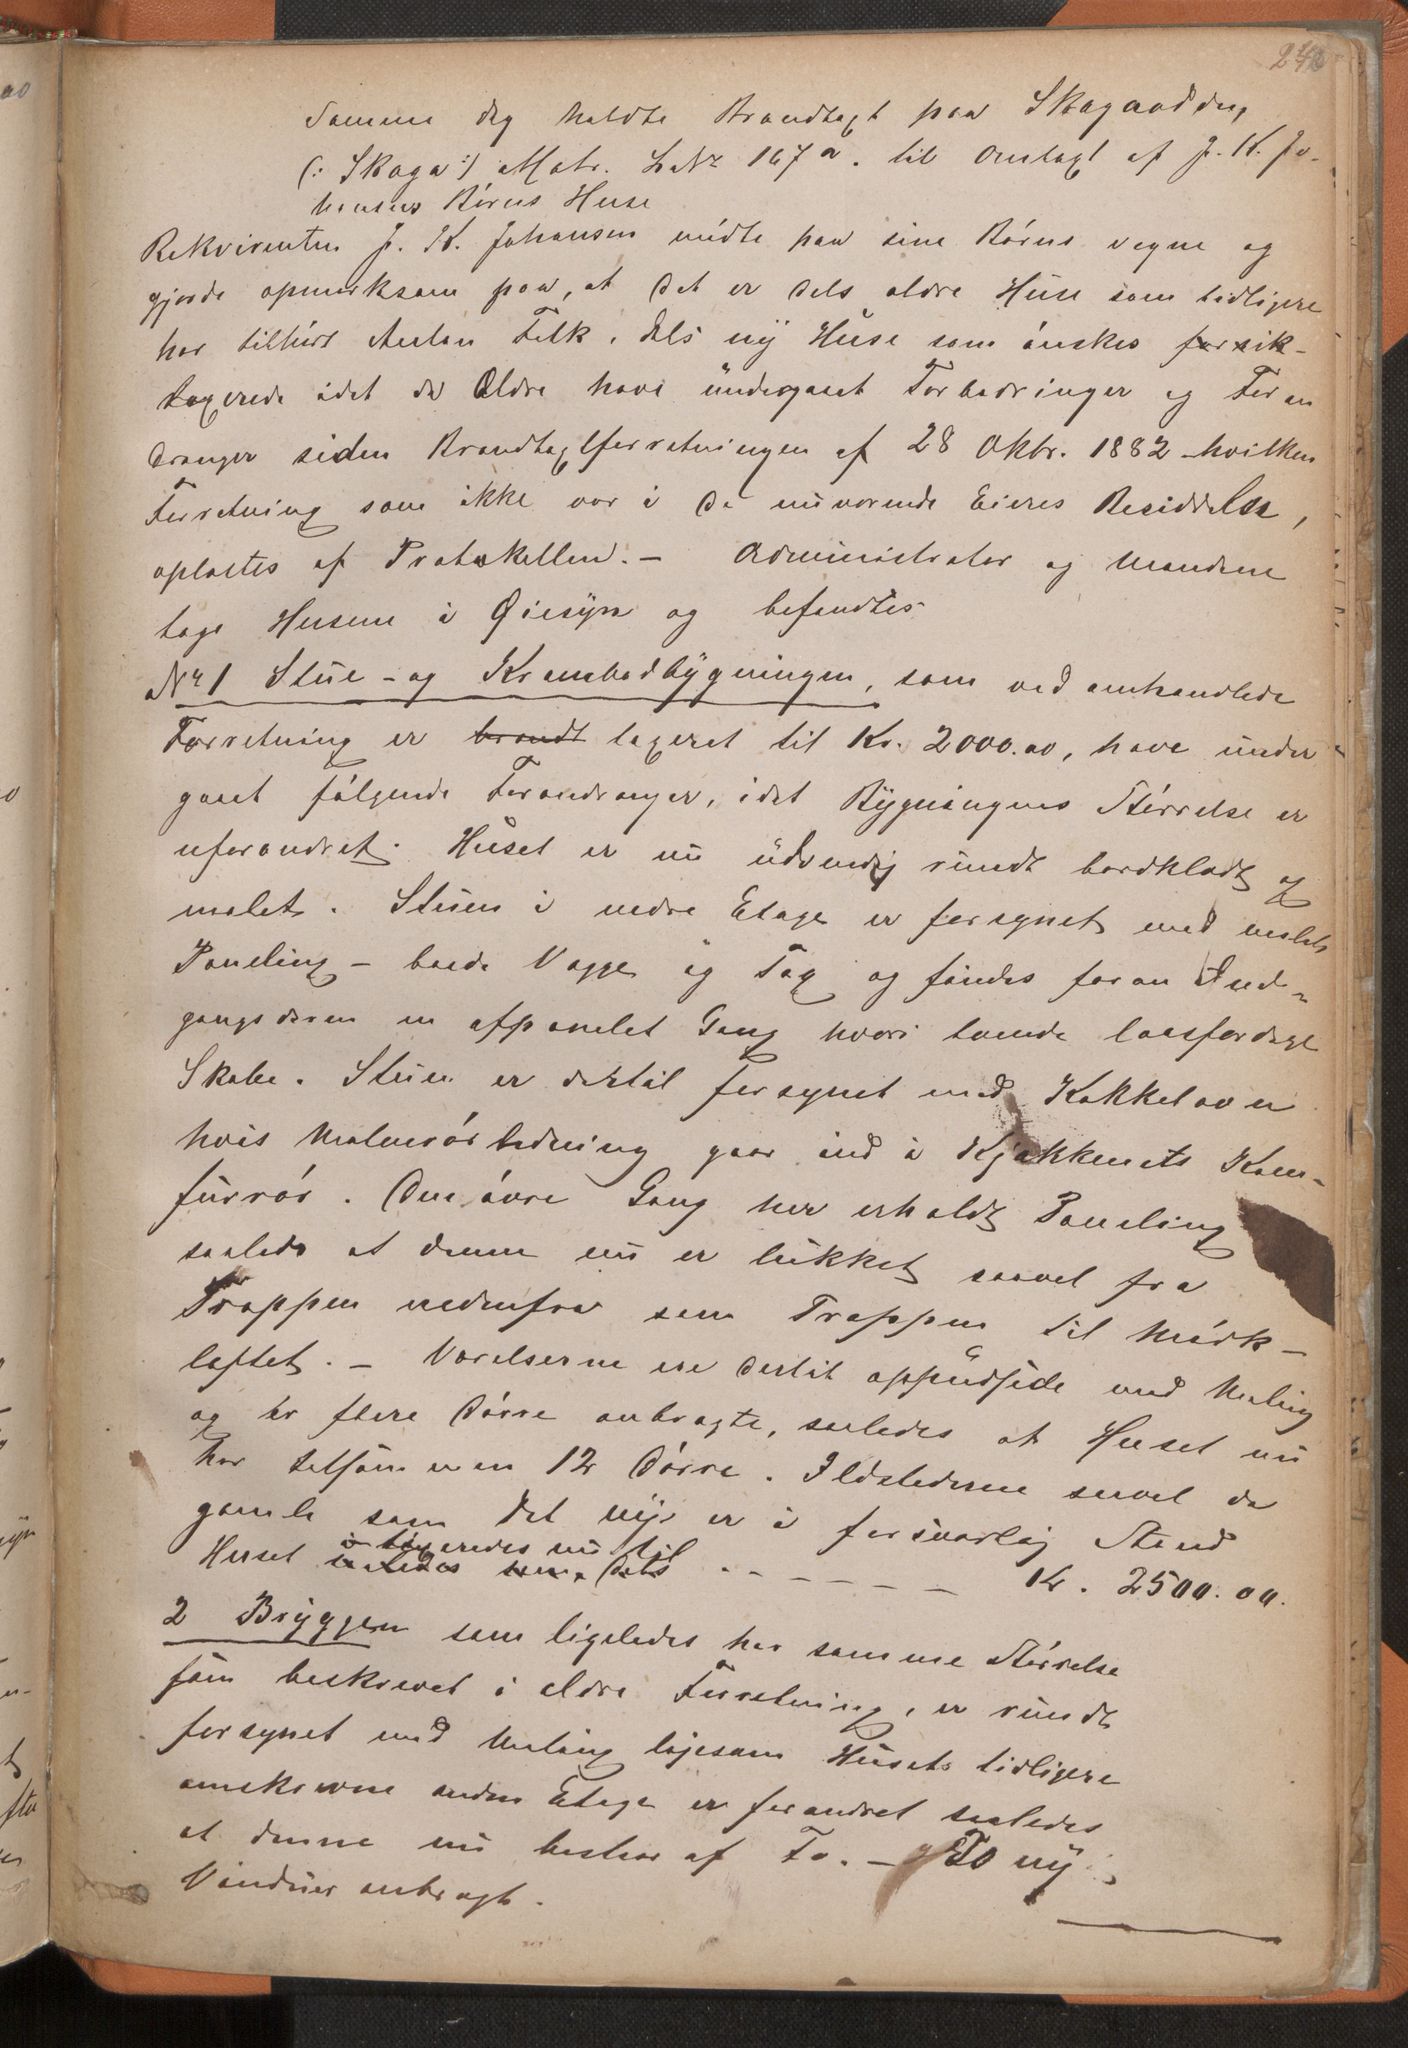 240
Samme dag holdte Brandtaxt paa Skagaodden
(: Skaga :) Matr. L No 167 a. til Omtaxt af J. K. Jo-
hansens Börns Huse
Rekvirenten J. K. Johansen mödte paa sine Börns vegne og
gjorde opmerksom paa, at det er dels eldre Huse som tidligere
har tilhört Anton Falk, dels ny Huse som önskes forsik-
taxerede idet de Eldre have undergaaet Forbedringer og Foran
dringer siden Brandtaxtforretningen af 28 Oktbr. 1882 - hvilken
Forretning som ikke var i de nuværende Eieres Besiddelse,
oplæstes af Protokollen. - Administrator og Mændene
toge Husene i Øiesyn og befandtes
No 1 Stue - og Krambodbygningen, som ved omhandlede
Forretning er brandt taxeret til Kr. 2000.00, have under
gaaet fölgende Forandringer, idet Bygningens Störrelse er
uforandret. Huset er nu udvendig rundt bordklædt og
malet. Stuen i nedre Etage er forsynet med malet
Paneling - baade Vægge og Tag og findes foran Ind-
gangsdören en afpanelet Gang hvori tvende laasferdige
Skabe. Stuen er dertil forsynet med Kakkelovn
hvis Malmrörledning gaar ind i Kjökkenets Kom-
furrör. Den övre Gang har erholdt Paneling
saaledes at denne nu er lukket saavel fra
Trappen nedenfra som Trappen til Mörk-
loftet. - Værelserne ere dertil oppudsede med Maling
og er flere Dörre anbragte, saaledes at Huset nu
har tilsammen 12 Dörre. Ildstederne saavel de
gamle som det nye er i forsvarlig Stand
Huset taxeredes nu til - - - - - - Kr. 2500.00.
2 Bryggen som ligeledes har samme Störrelse
som beskrevet i eldre Forretning, er rundt
forsynet med Maling ligesom Husets tidligere
omskrevne anden Etage er forandret saaledes
at denne nu bestaar af To. - To ny
Vinduer anbragt.